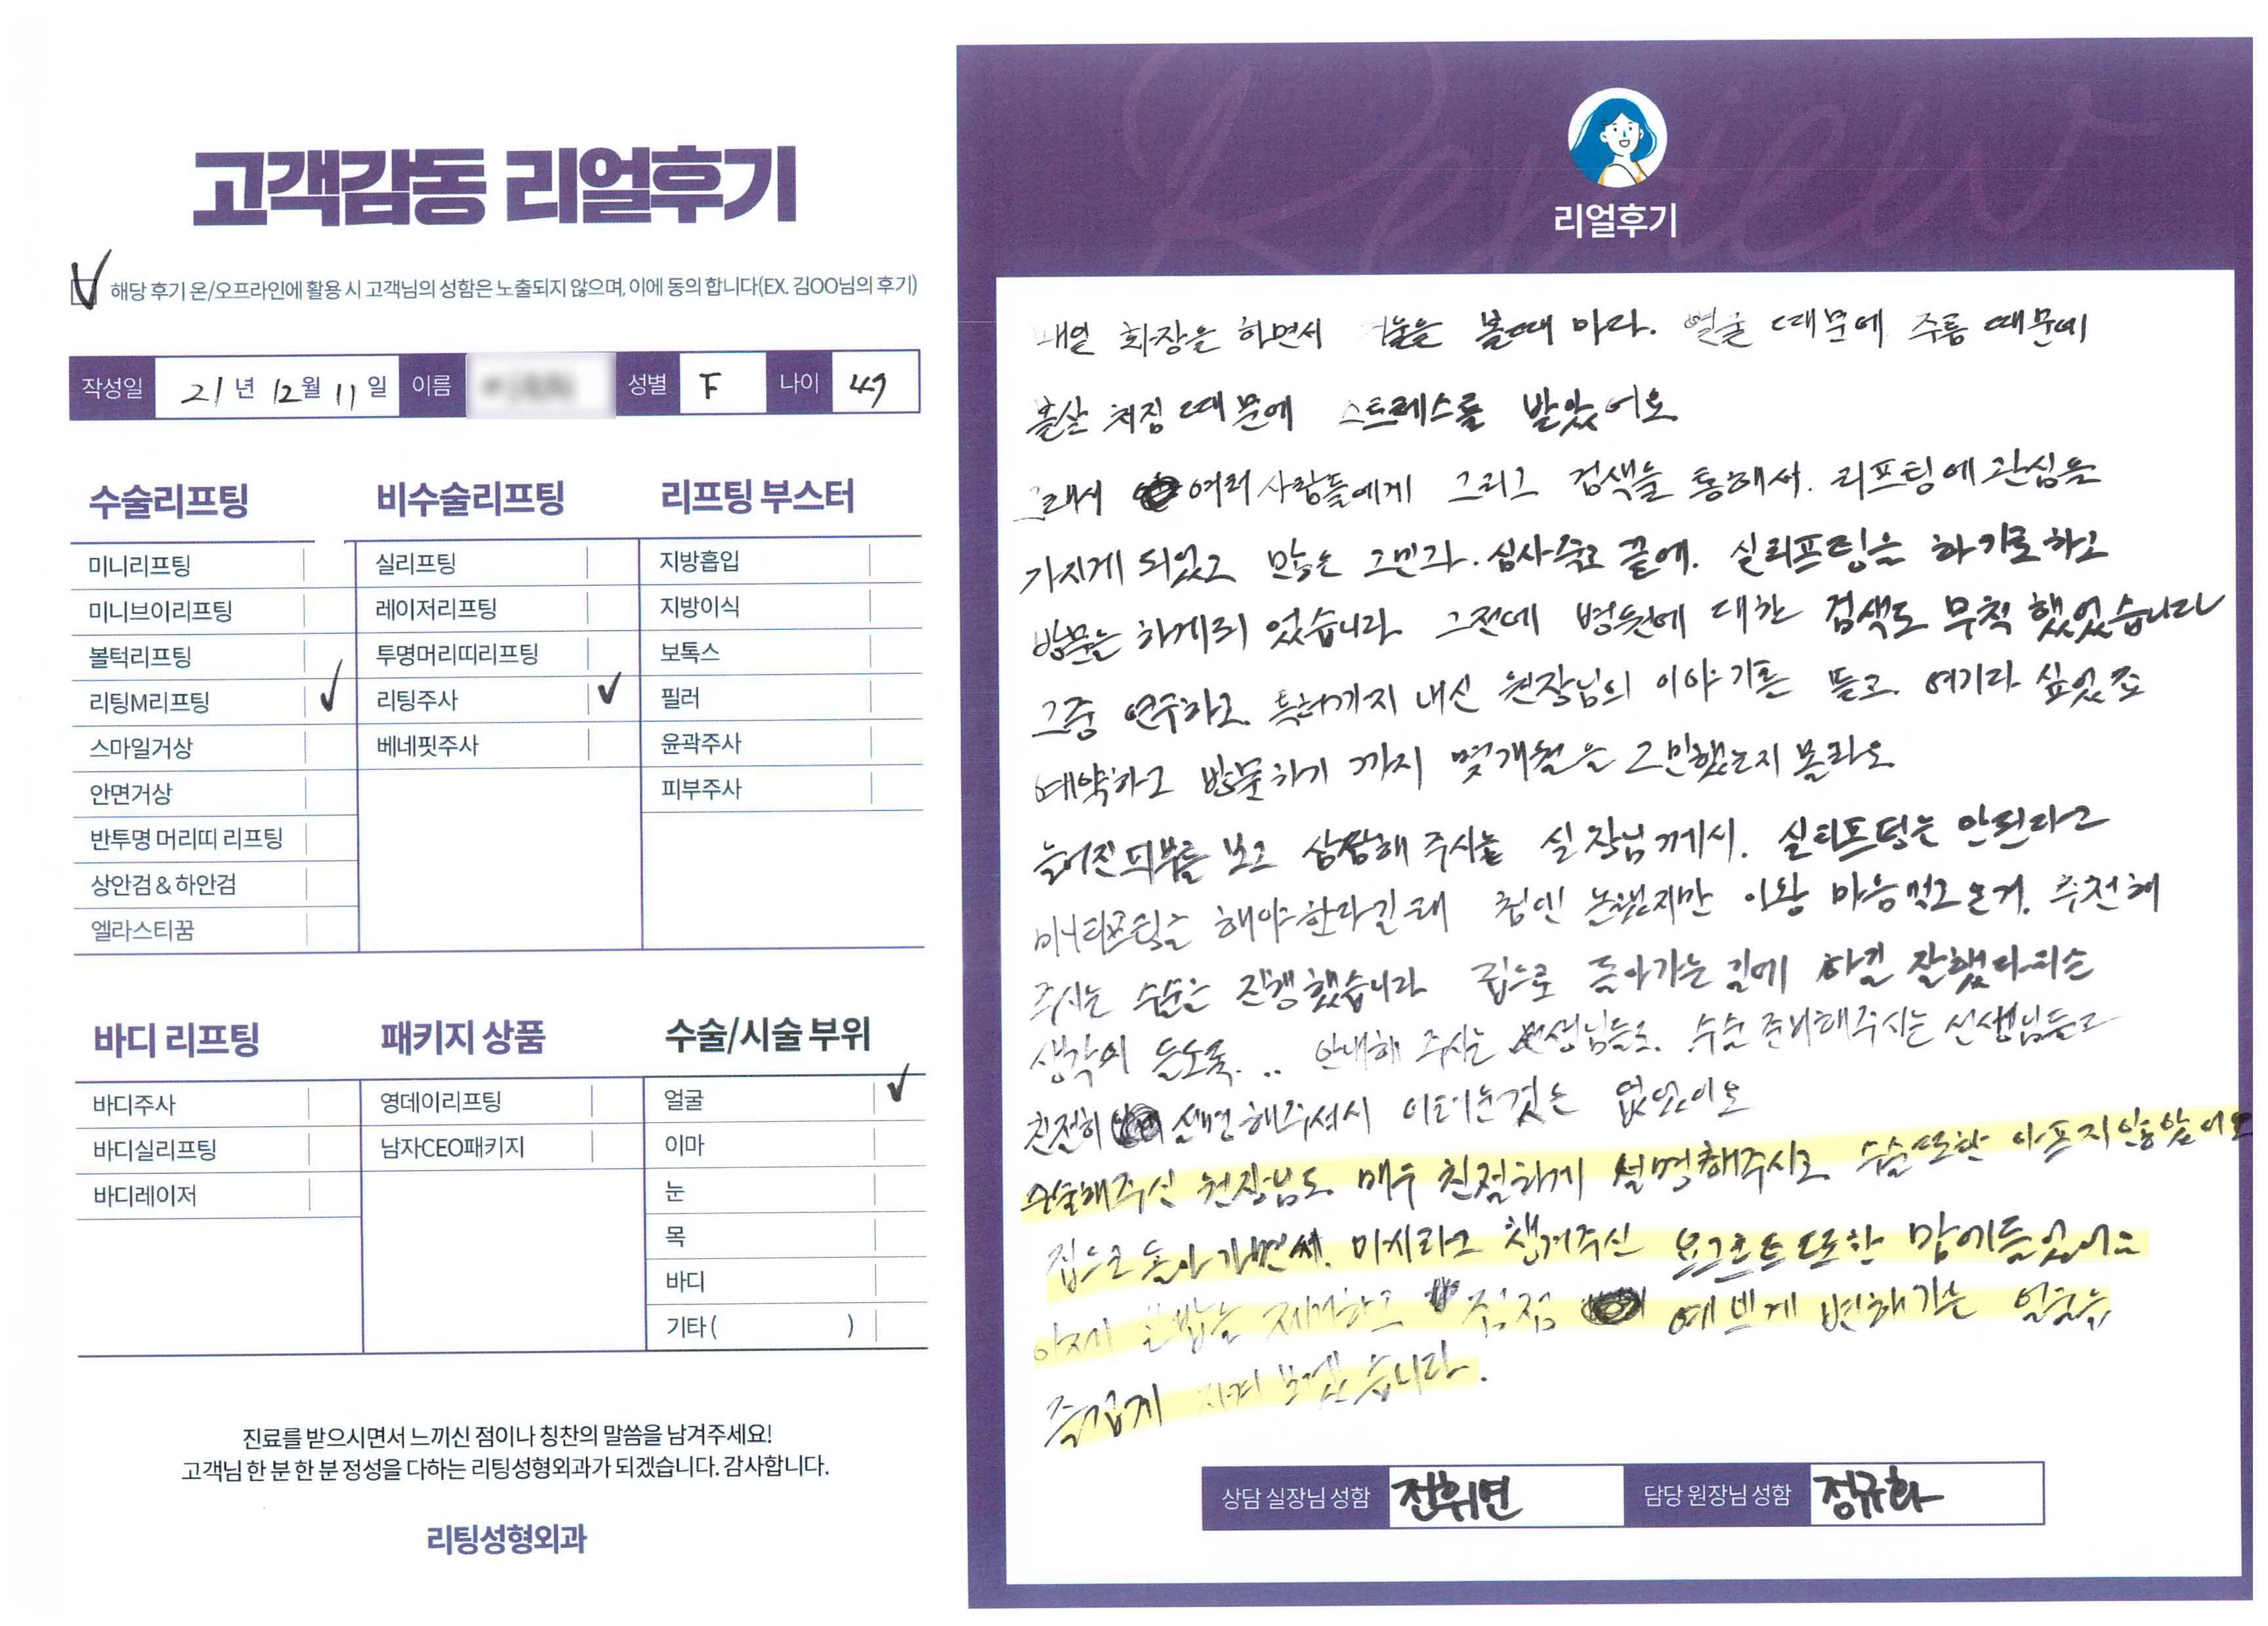 고객감동 리얼후기
해당 후기 온/오프라인에 활용 시 고객님의 성함은 노출되지 않으며, 이에 동의 합니다(EX. 김OO님의 후기)
작성일 21년 12월 11일 이름 성별 F 나이 49
수술리프팅
미니리프팅
미니브이리프팅
볼턱리프팅
리팅M리프팅
스마일거상
안면거상
반투명 머리띠 리프팅
상안검 & 하안검
엘라스티꿈
비수술리프팅
실리프팅
레이저리프팅
투명머리띠리프팅
리팅주사
베네핏주사
리프팅 부스터
지방흡입
지방이식
보톡스
필러
윤곽주사
피부주사
바디 리프팅
바디주사
바디실리프팅
바디레이저
패키지 상품
영데이리프팅
남자CEO패키지
수술/시술 부위
얼굴
이마
눈
목
바디
기타 ( )
진료를 받으시면서 느끼신 점이나 칭찬의 말씀을 남겨주세요!
고객님 한 분 한 분 정성을 다하는 리팅성형외과가 되겠습니다. 감사합니다.
리팅성형외과
Review
리얼후기
매일 화장을 하면서 거울을 볼때 마다. 얼굴 때문에 주름 때문에
볼살 처짐 때문에 스트레스를 받았어요
그래서 여러 사람들에게 그리고 검색을 통해서. 리프팅에 관심을
가지게 되었고 많은 고민과. 심사숙고 끝에. 실리프팅을 하기로 하고
방문을 하게되 었습니다 그전에 병원에 대한 검색도 무척 했었습니다
그중 연구하고 특허까지 내신 원장님의 이야기를 듣고. 여기라 싶었죠
예약하고 방문하기 까지 몇개월을 고민했는지 몰라요
늘어진 피부를 보고 상담해 주시는 실장님께서. 실리프팅은 안된다고
미니리프팅을 해야한다길래 첨엔 놀랬지만 이왕 마음먹고 온거. 추천해
주시는 수술은 진행했습니다 집으로 돌아가는 길에 하길 잘했다라는
생각이 들도록... 안내해 주시는 선생님들도. 수술 준비해주시는 선생님들도
친절히 설명해주셔서 어려운것은 없었어요
수술해주신 원장님도 매우 친절하게 설명해주시고 수술또한 아프지않았어요
집으로 돌아가면서. 마시라고 챙겨주신 요구르트 또한 맘에들었어요
이제 실밥을 제거하고 점점 예쁘게 변해가는 얼굴을
즐겁게 지켜 보겠습니다.
상담 실장님 성함 전휘연 담당 원장님 성함 정규화